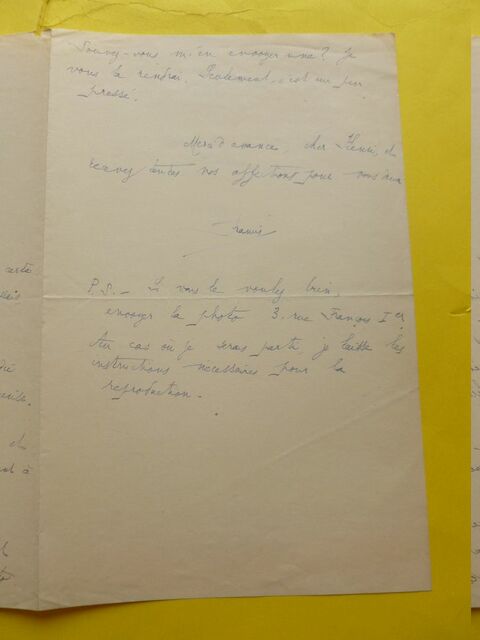 Pouvez-vous m'en envoyer une? Je
vous la rendrai. Seulement, c'est un peu
pressé.
Merci d'avance, cher Henri, et
recevez toutes nos affections pour vous deux
Francis
P.S. - Si vous le voulez bien,
envoyer la photo 3, rue François Ier
Au cas où je serais parti, je laisse les
instructions nécessaires pour la
reproduction.
et